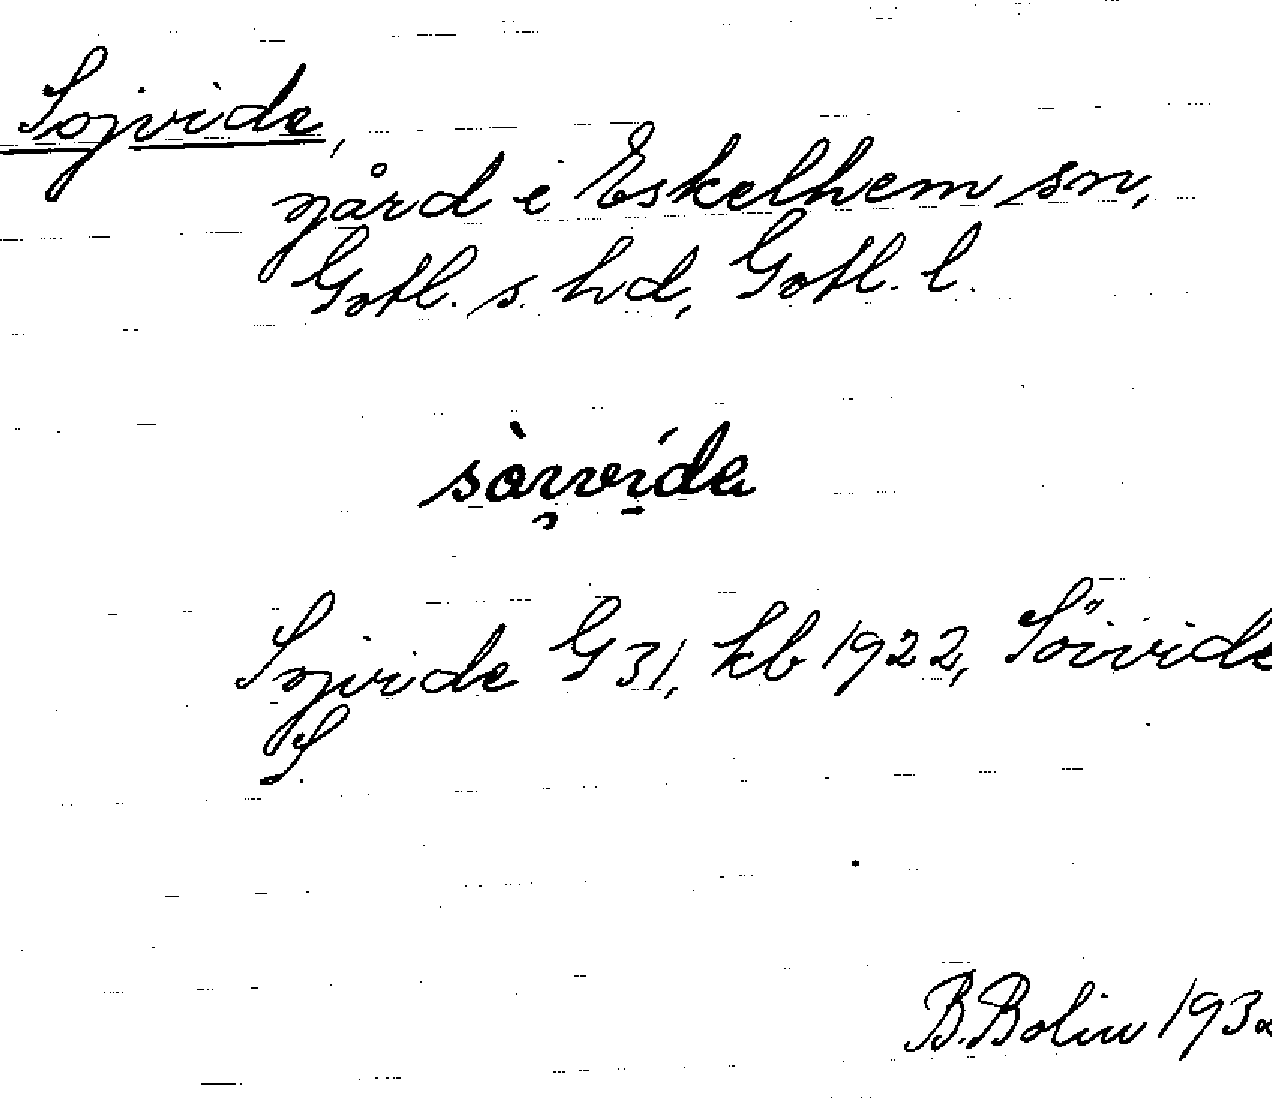 Sojvide,
gård i Eskelhem sn,
Gotl. s. hd, Gotl. l.
Sojvide G 31, kb 1922, Söivide
S.
B. Bolin 1932